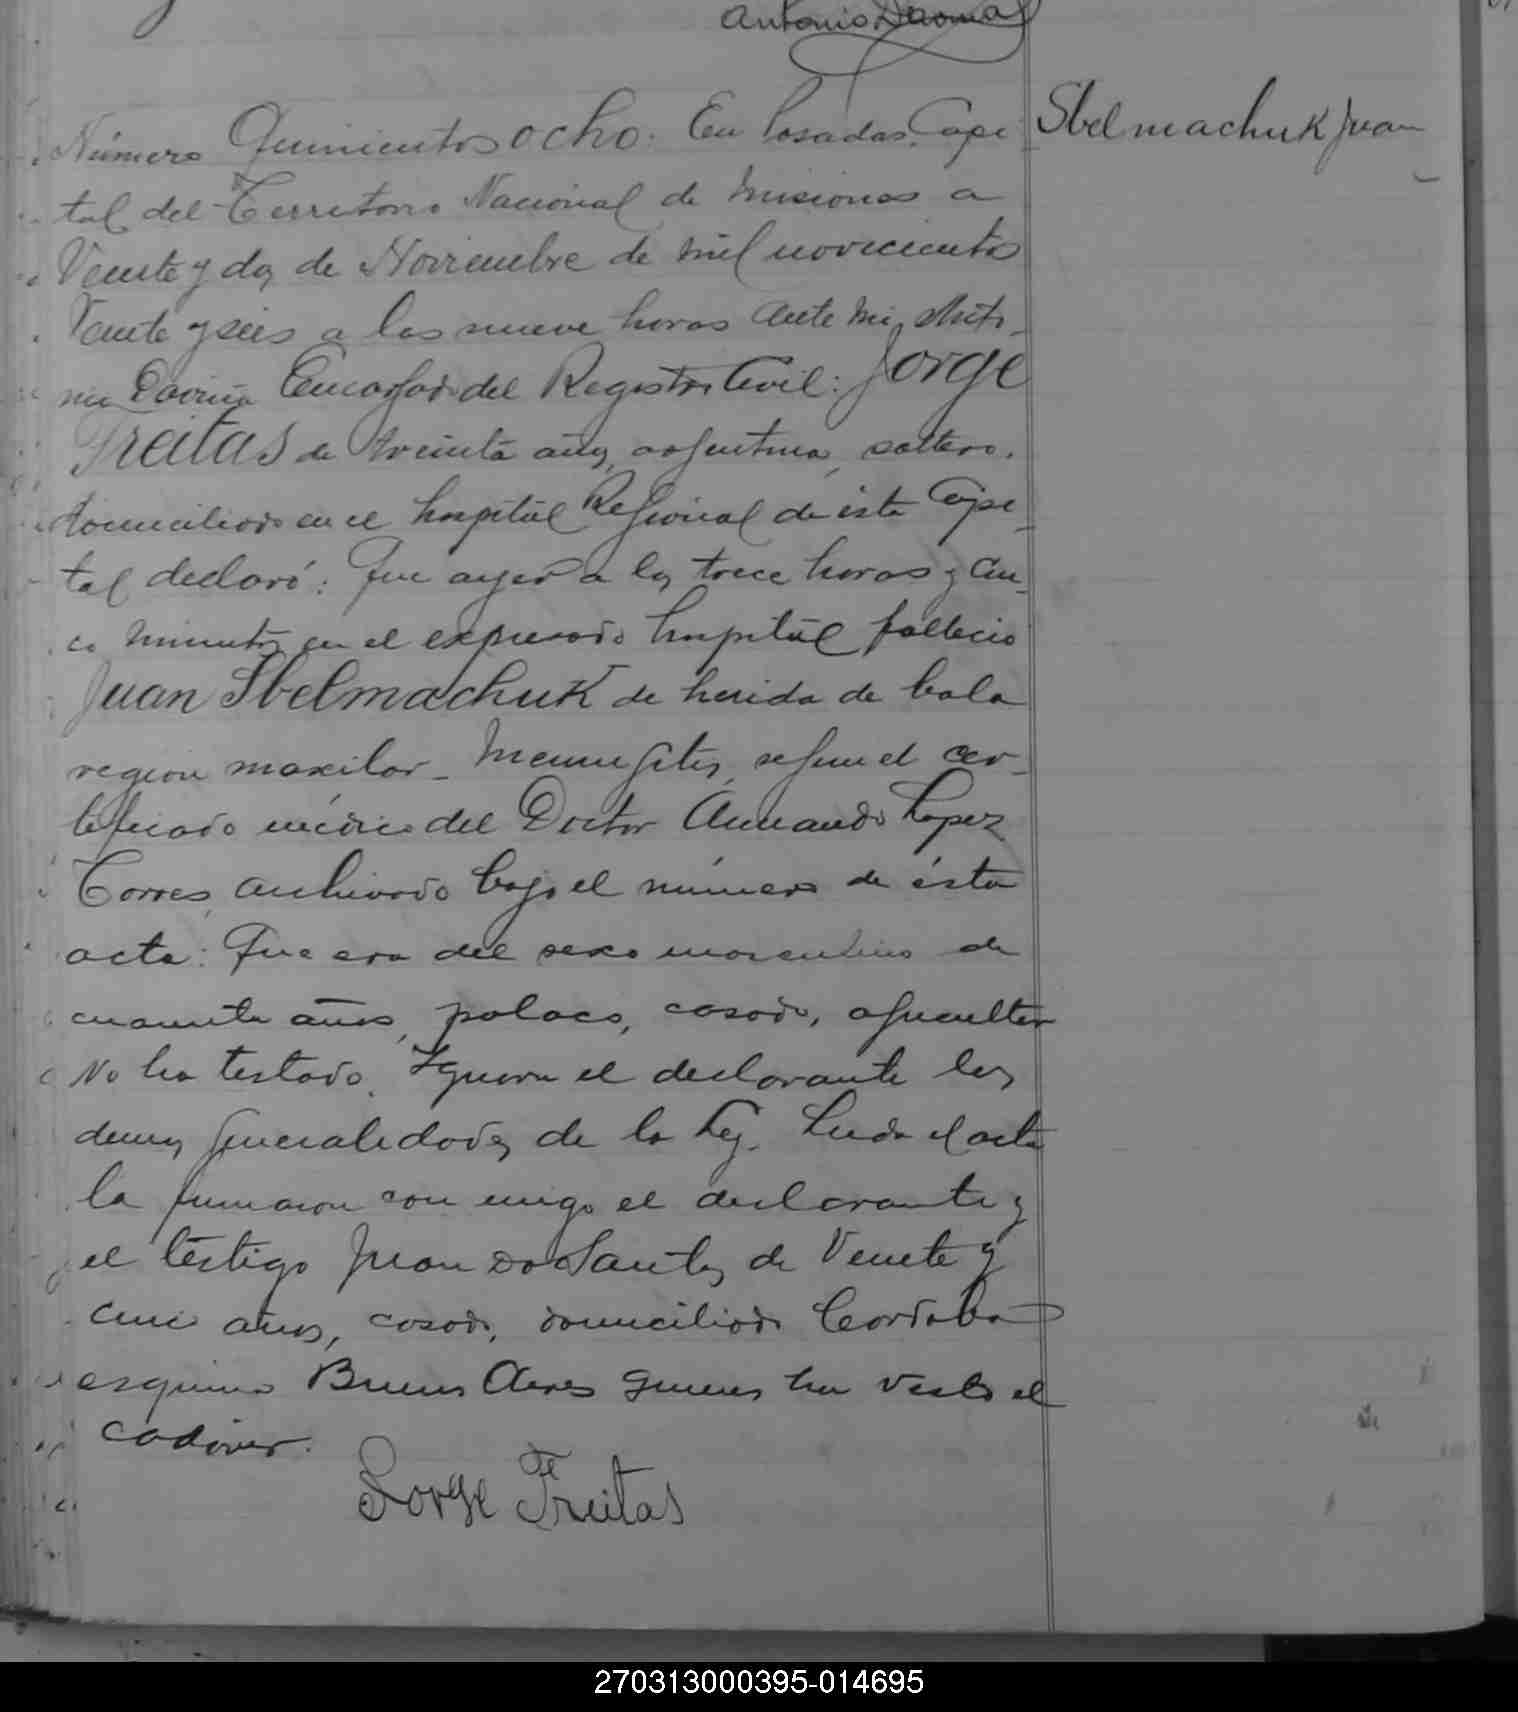 Antonio
Número Quinientos ocho. En Posadas, Capi
Stelmachuk Juan
tal del Territorio Nacional de Misiones a
Veinte y dos de Noviembre de mil novecientos
Veinte y seis a las nueve horas ante mi, Anto-
nio Encargado del Registro Civil: Jorge
Freitas de treinta años, argentino, soltero,
domiciliado en el hospital Regional de ésta Capi-
tal declaró: Que ayer a las trece horas y cin-
co minutos en el expresado hospital fallecio
Juan Stelmachuk de herida de bala
region maxilar - Meningitis, segun el cer-
tificado médico del Doctor Armando Lopez
Torres, archivado bajo el número de ésta
acta: Que era del sexo masculino de
cuarenta años, polaco, casado, agricultor
No ha testado. Ignora el declarante las
demas generalidades de la Ley. Leida el acta
la firmaron con migo el declarante y
el testigo Juan Do Santos de Veinte y
cinco años, casado, domiciliado Cordoba
esquina Buenos Aires quienes han visto el
cadáver.
Jorge Freitas
270313000395-014695